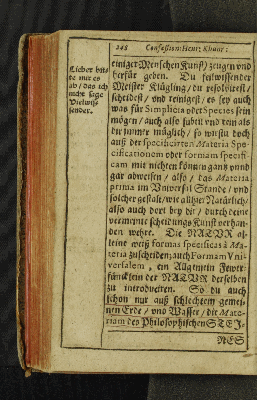 248 Confession Henr: Khunr:
einiger Menschen Kunst/ zeugen und
herfür geben. Du feilwissender
Meister Klügling/ du resolvirest/
scheidest/ und reinigest/ es sey auch
was für Simplicia oder Species sein
mögen/ auch also subtil und rein als
dir immer müglich/ so wirstu doch
auß der specificirten Materia Spe-
cificationem oder formam specifi-
cam mit nichten können gantz und
gar abweisen/ also/ das Materia
prima im Universal Stande/ und
solcher gestalt/ wie allhier Natürlich/
also auch dort bey dir/ durch deine
vermeinte scheidungs Kunst verhan-
den wehre. Die NATVR al-
leine weiß formas specificas à Ma-
teria zu scheiden; auch Formam Vni-
versalem, ein Allgemein Fewer-
füncklein der NATVR derselben
zu introduciren. So du auch
schon nur auß schlechtem gemei-
nen Erde/ und Wasser/ die Mate-
riam des Philosophischen STEI-
NES
Lieber bit-
te mir es
ab/ das ich
nicht sage
Vielwis-
sender.